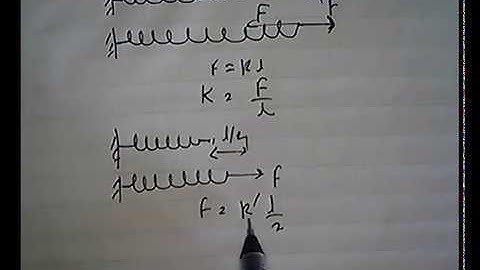 F F
F = kl
K = F/l
l/2
F
F = k' l/2